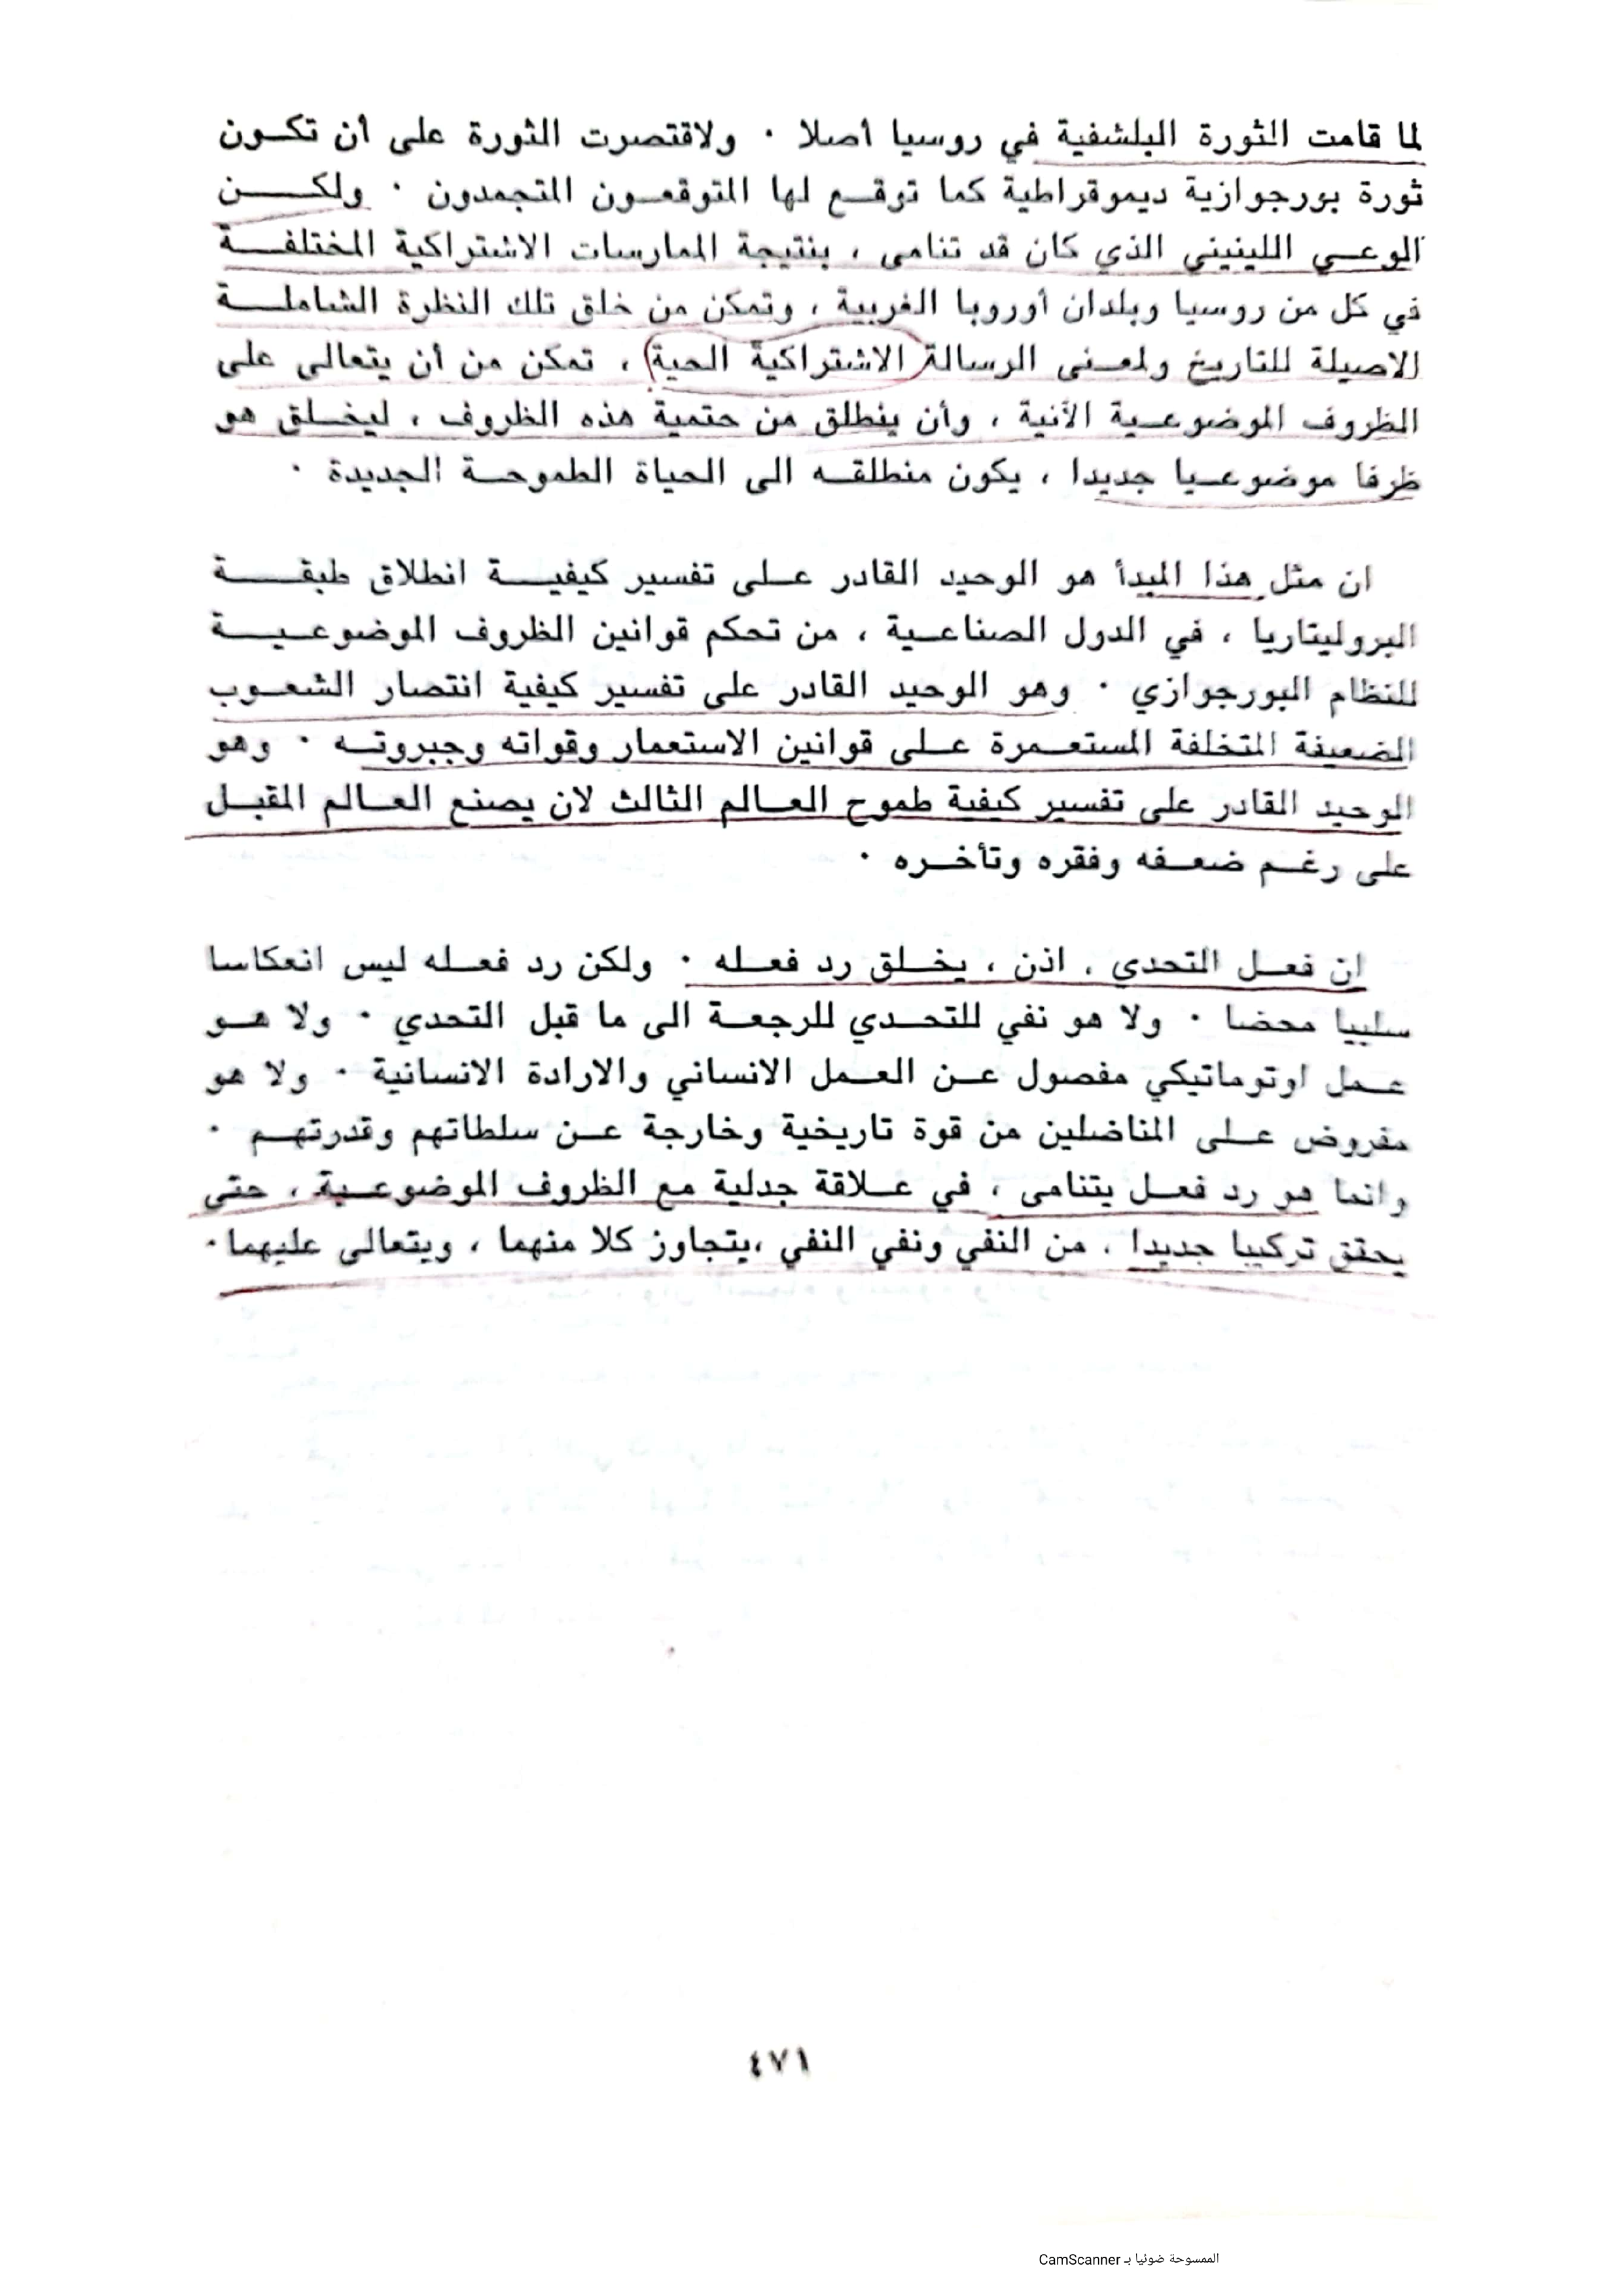 لما قامت الثورة البلشفية في روسيا أصلا . ولاقتصرت الثورة على أن تكون
ثورة بورجوازية ديموقراطية كما توقع لها المتوقعون المتجمدون . ولكن
الوعي اللينيني الذي كان قد تنامى ، بنتيجة الممارسات الاشتراكية المختلفة
في كل من روسيا وبلدان أوروبا الغربية ، وتمكن من خلق تلك النظرة الشاملة
الاصيلة للتاريخ ولمعنى الرسالة الاشتراكية الحية ، تمكن من أن يتعالى على
الظروف الموضوعية الآنية ، وأن ينطلق من حتمية هذه الظروف ، ليخلق هو
ظرفا موضوعيا جديدا ، يكون منطلقه الى الحياة الطموحة الجديدة .
ان مثل هذا المبدأ هو الوحيد القادر على تفسير كيفية انطلاق طبقة
البروليتاريا ، في الدول الصناعية ، من تحكم قوانين الظروف الموضوعية
للنظام البورجوازي . وهو الوحيد القادر على تفسير كيفية انتصار الشعوب
الضعيفة المتخلفة المستعمرة على قوانين الاستعمار وقواته وجبروته . وهو
الوحيد القادر على تفسير كيفية طموح العالم الثالث لان يصنع العالم المقبل
على رغم ضعفه وفقره وتأخره .
ان فعل التحدي ، اذن ، يخلق رد فعله . ولكن رد فعله ليس انعكاسا
سلبيا محضا . ولا هو نفي للتحدي للرجعة الى ما قبل التحدي . ولا هو
عمل اوتوماتيكي مفصول عن العمل الانساني والارادة الانسانية . ولا هو
مفروض على المناضلين من قوة تاريخية وخارجة عن سلطاتهم وقدرتهم .
وانما هو رد فعل يتنامى ، في علاقة جدلية مع الظروف الموضوعية ، حتى
يحقق تركيبا جديدا ، من النفي ونفي النفي ،يتجاوز كلا منهما ، ويتعالى عليهما.
٤٧١
الممسوحة ضوئيا بـ CamScanner